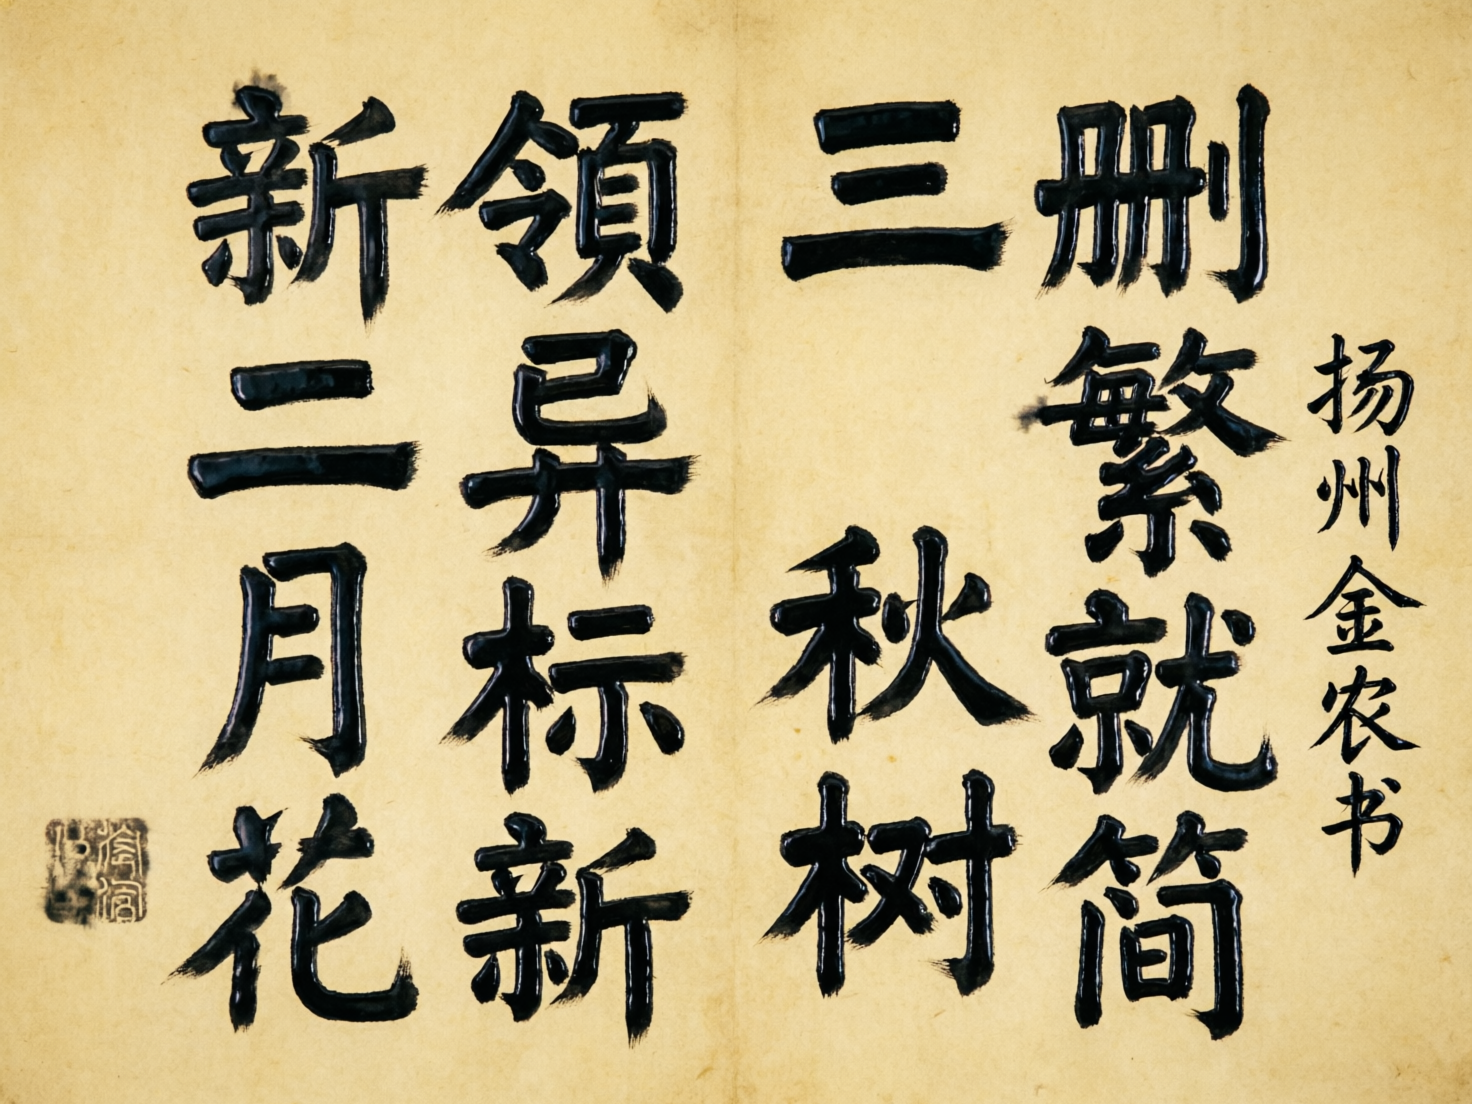 扬州金农书
删繁就简
三秋树
領异标新
新二月花